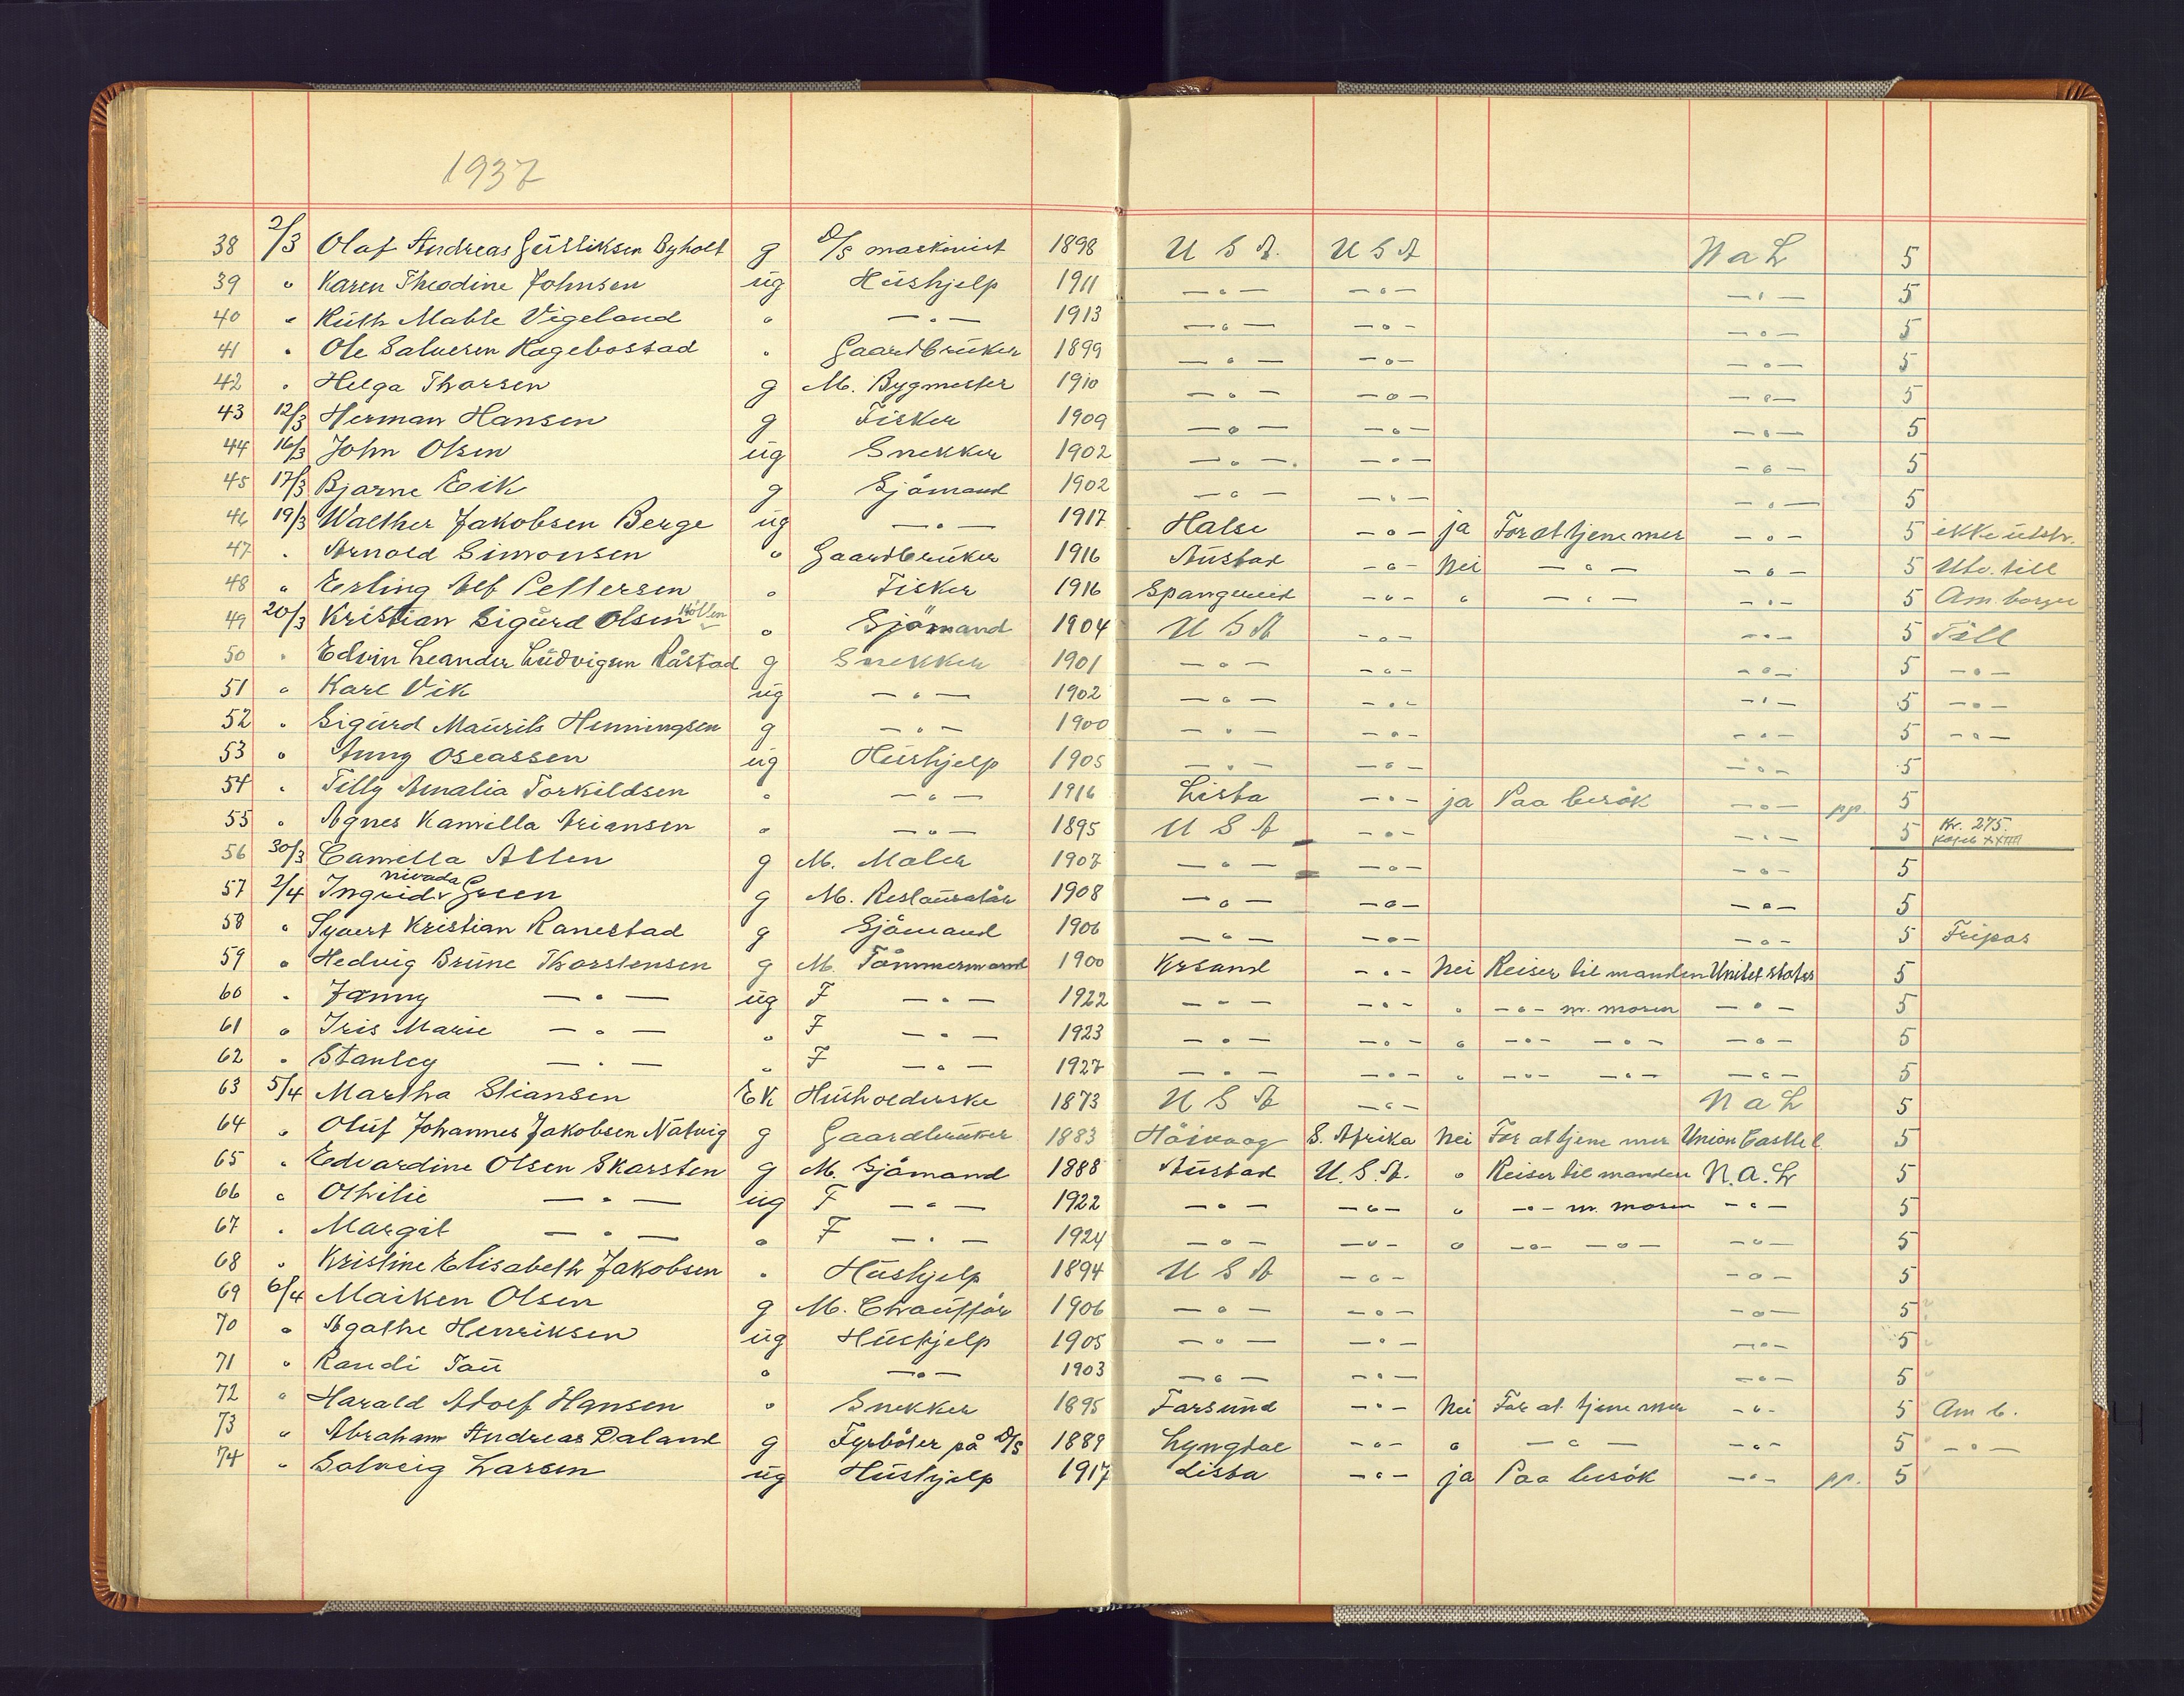 1937
38 2/3 Olaf Andreas Gulliksen Byholt g D/S maskinist 1898 U S A. U S A N a L 5
39 " Karen Theodine Johnsen ug Hushjelp 1911 — " — — " — — " — 5
40 " Ruth Mable Vigeland " — " — 1913 — " — — " — — " — 5
41 " Ole Salvesen Hagebostad " Gaardbruker 1899 — " — — " — — " — 5
42 " Helga Thorsen g M. Bygmester 1910 — " — — " — — " — 5
43 12/3 Herman Hansen g Fisker 1909 — " — — " — — " — 5
44 16/3 John Olsen ug Snekker 1902 — " — — " — — " — 5
45 17/3 Bjarne Eik g Sjömand 1902 — " — — " — — " — 5
46 19/3 Walther Jakobsen Berge ug — " — 1917 Halse — " — ja For at tjene mer — " — 5 ikke
47 " Arnold Simonsen " Gaardbruker 1916 Austad — " — Nei — " — — " — 5 Utv. till
48 " Erling Alf Pettersen " Fisker 1916 Spangereid — " — " — " — — " — 5 Am. borger
49 20/3 Kristian Sigurd Olsen Höllen " Sjömand 1904 U S A — " — — " — 5 Till
50 " Edvin Leander Ludvigsen Råstad g Snekker 1901 — " — — " — — " — 5 — " —
51 " Karl Vik ug — " — 1902 — " — — " — — " — 5 — " —
52 " Sigurd Maurits Henningsen g — " — 1900 — " — — " — — " — 5 — " —
53 " Anny Oseassen ug Hushjelp 1905 — " — — " — — " — 5
54 " Tilly Amalia Torkildsen " — " — 1916 Lista — " — ja Paa besök — " — pp. 5
55 " Agnes Kamilla Ariansen " — " — 1895 U S A — " — — " — 5 Kr. 275.
56 30/3 Camilla Allen g M. Maler 1907 — " — — " — — " — 5
57 2/4 Ingrid nivada Green g M. Restauratör 1908 — " — — " — — " — 5
58 " Syvert Kristian Ranestad g Sjömand 1906 — " — — " — — " — 5 Fripas
59 " Hedvig Brune Thorstensen g M. Tömmermand 1900 Krsand — " — Nei Reiser til manden Unitet states 5
60 " Fanny — " — ug F — " — 1922 — " — — " — " — " — m. moren — " — 5
61 " Iris Marie — " — " F — " — 1923 — " — — " — " — " — — " — — " — 5
62 " Stanley — " — " F — " — 1927 — " — — " — " — " — — " — — " — 5
63 5/4 Martha Stiansen EK Husholderske 1873 U S A — " — N a L 5
64 " Oluf Johannes Jakobsen Nätvig g Gaardbruker 1883 Höivaag S. Afrika Nei For at tjene mer Union Casttel 5
65 " Edvardine Olsen Skarsten g M. Sjömand 1888 Austad U. S. A. " Reiser til manden N. A. L 5
66 " Othilie — " — ug F — " — 1922 — " — — " — " — " — m. moren — " — 5
67 " Margit — " — " F — " — 1924 — " — — " — " — " — — " — — " — 5
68 " Kristine Elisabeth Jakobsen " Hushjelp 1894 U S A — " — — " — 5
69 6/4 Maiken Olsen g M. Chaufför 1906 — " — — " — — " — 5
70 " Agathe Henriksen ug Hushjelp 1905 — " — — " — — " — 5
71 " Randi Tau " — " — 1903 — " — — " — — " — 5
72 " Harald Adolf Hansen " Snekker 1895 Farsund — " — Nei For at tjene mer — " — 5 Am b.
73 " Abraham Andreas Daland g Fyrböter på D/S 1889 Lyngdal — " — " — " — — " — 5 — " —
74 " Solveig Larsen ug Hushjelp 1917 Lista — " — ja Paa besök — " — pp. 5